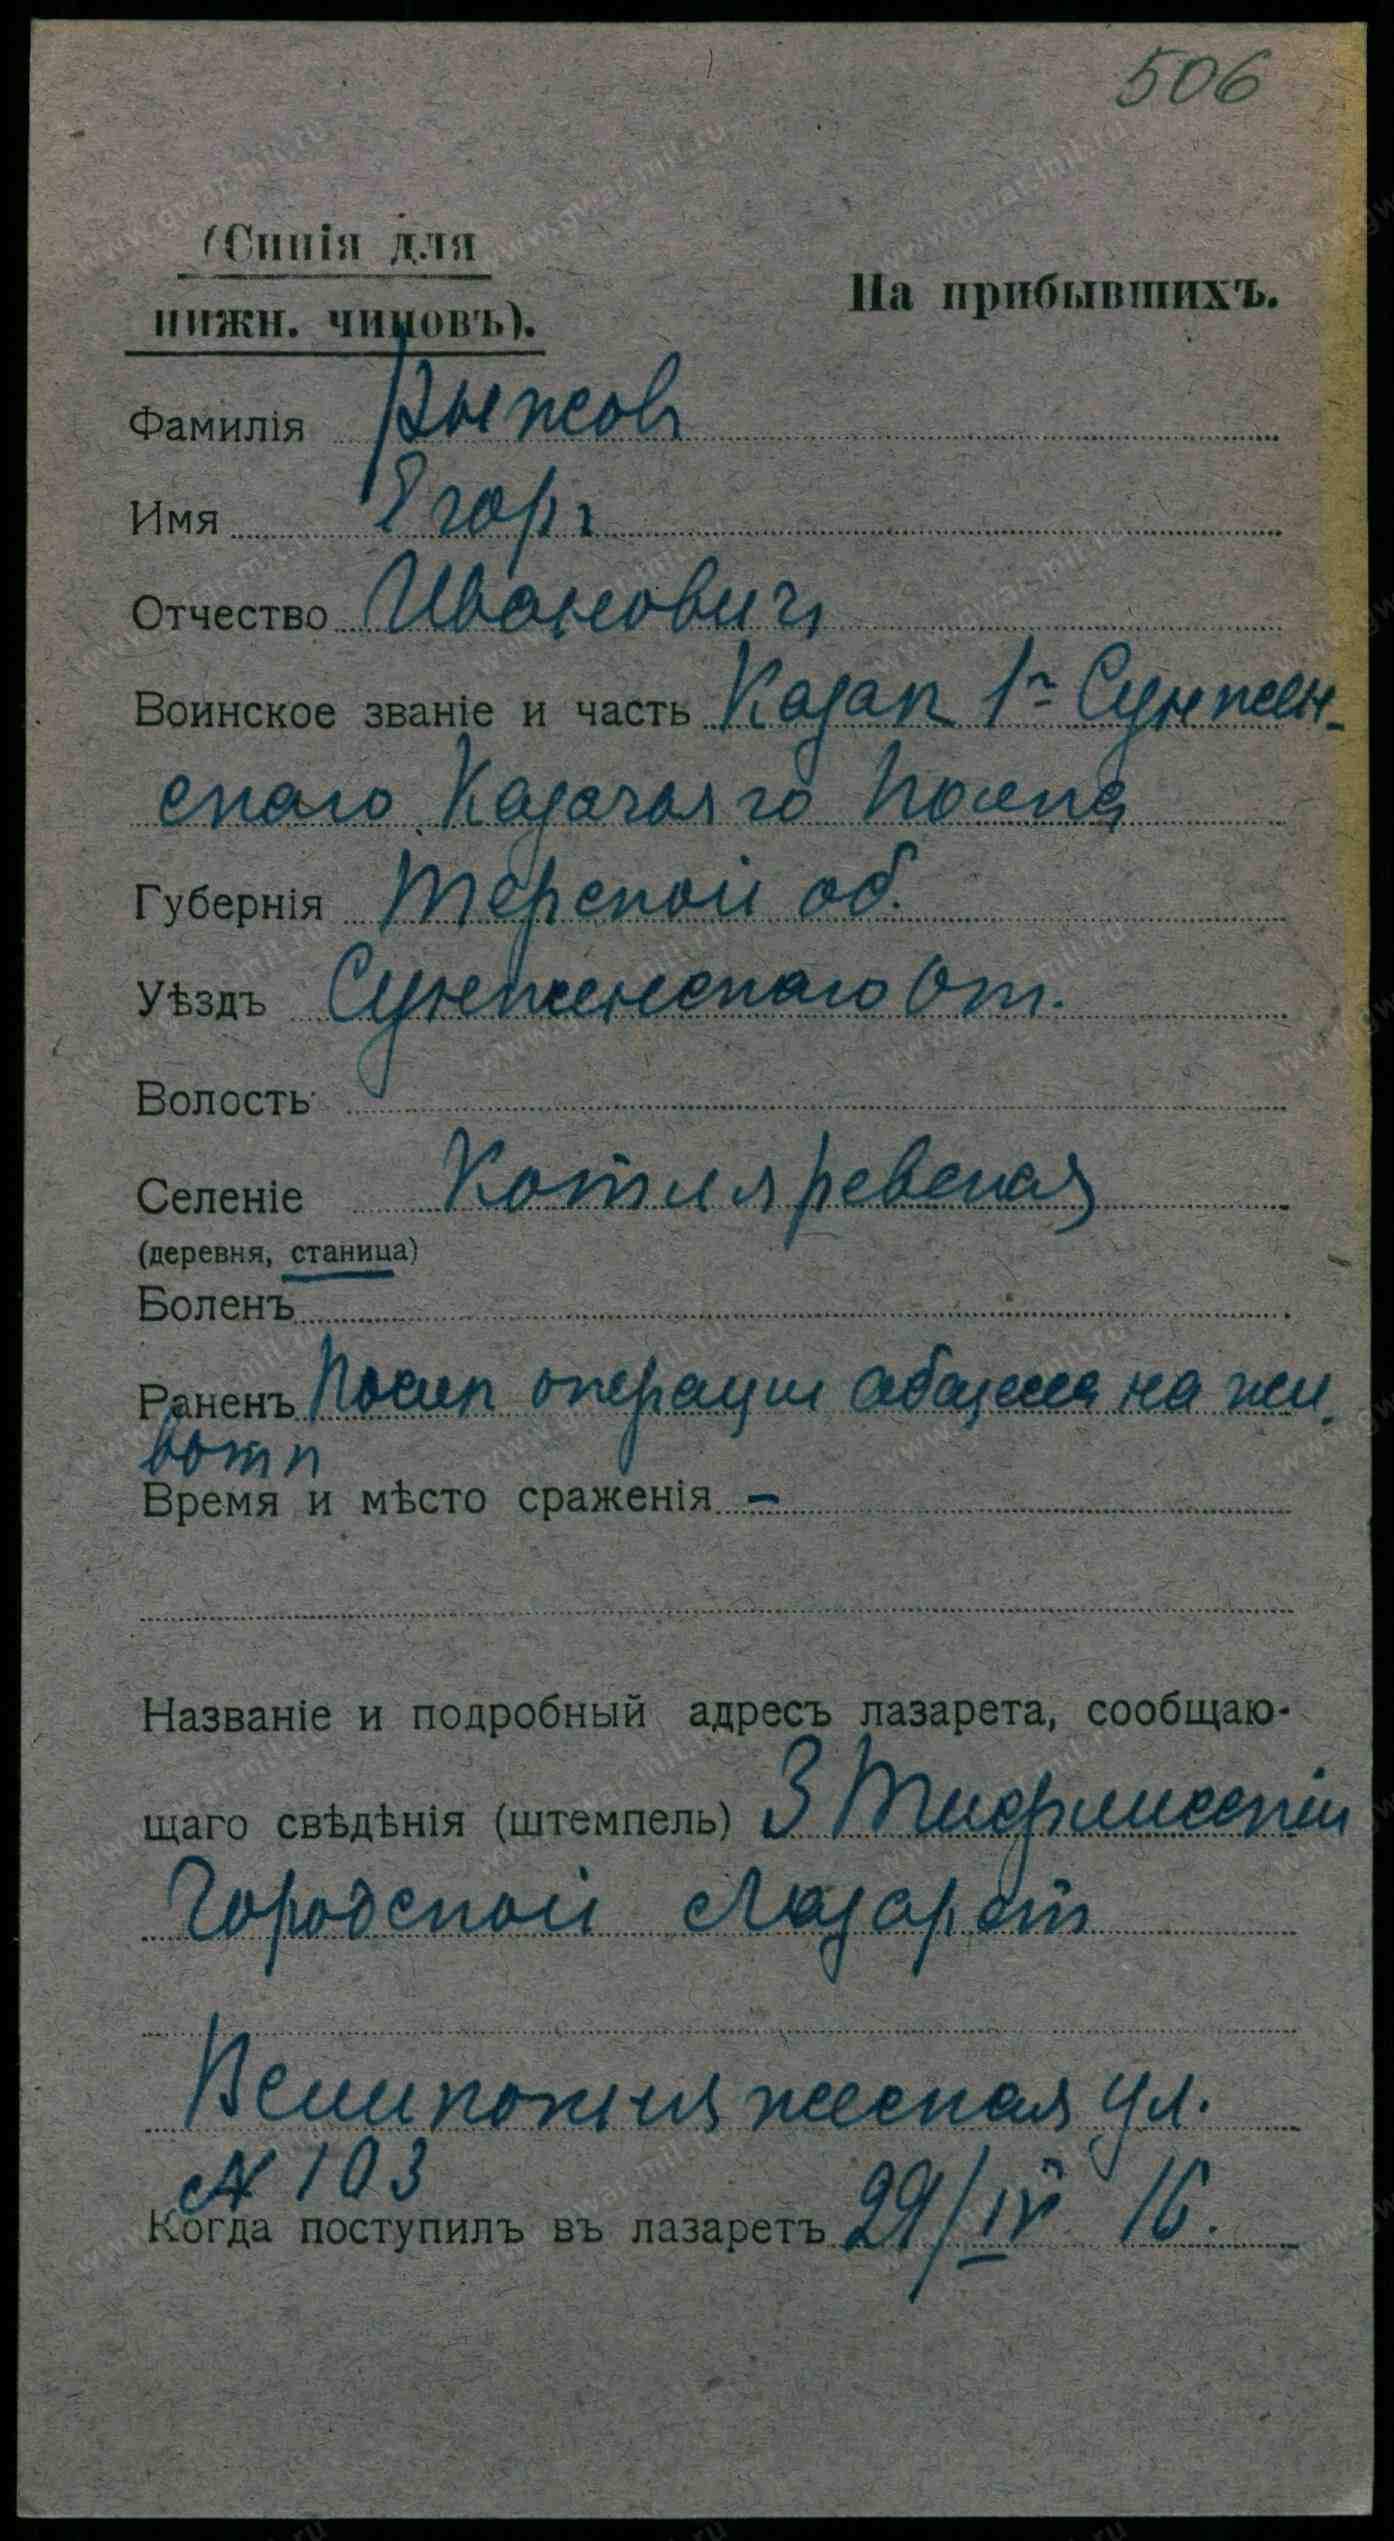 506
(Синія для
нижн. чиновъ).
На прибывшихъ.
Фамилія Рыжовъ
Имя Егоръ
Отчество Ивановичъ
Воинское званіе и часть Казак 1го Сунжен-
скаго Казачьяго Полка
Губернія Терской об.
Уѣздъ Сунженскаго От.
Волость
Селеніе Котляревская
(деревня, станица)
Боленъ
Раненъ После операции абцесса на жи-
воте
Время и мѣсто сраженія –
Названіе и подробный адресъ лазарета, сообщаю-
щаго свѣдѣнія (штемпель) 3 Тифлисскій
Городской Лазарет
Великокняжеская ул.
№ 103
Когда поступилъ въ лазаретъ 29/IV 16.